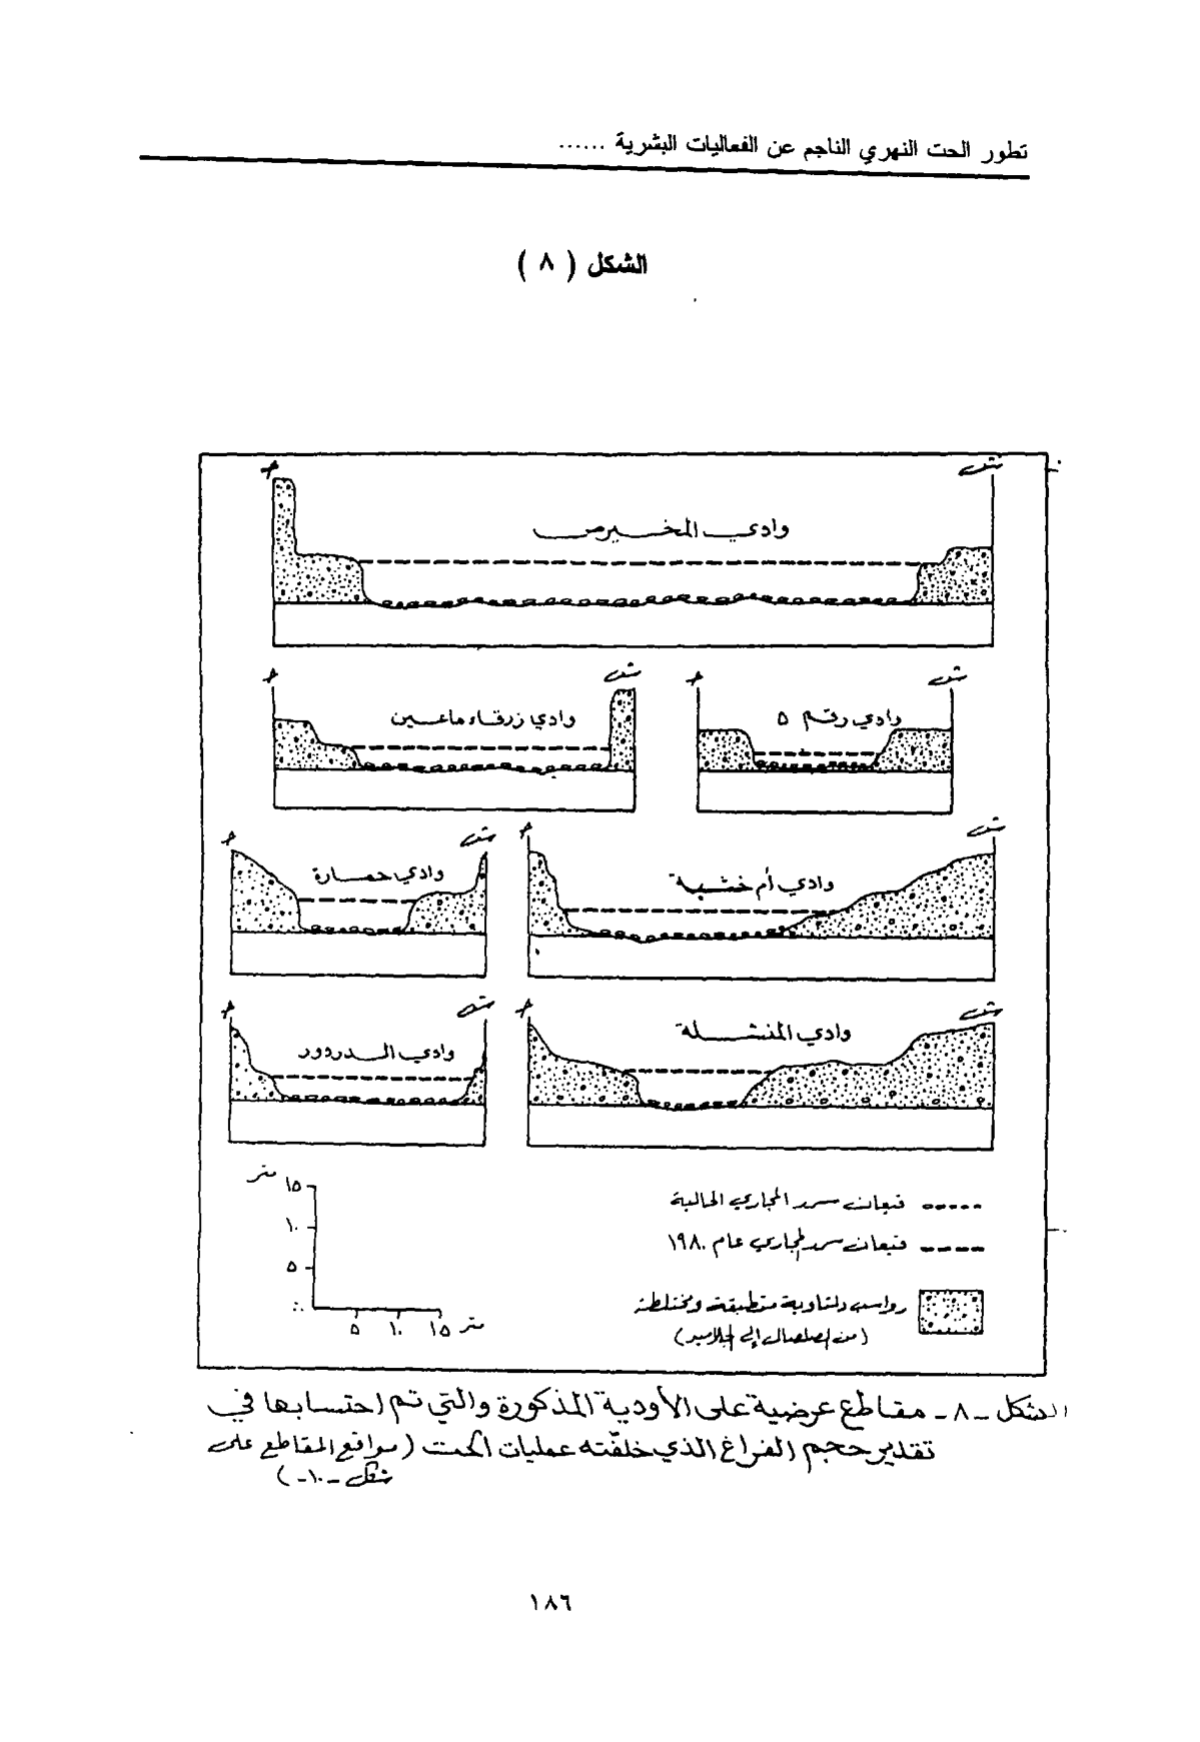 تطور الحت النهري الناجم عن الفعاليات البشرية ......
الشكل ( ٨ )
ش ج
وادي المخيرص
ش ج ش ج
وادي رقم ٥ وادي زرقاء ماعين
ش ج ش ج
وادي أم خشبة وادي حمارة
ش ج ش ج
وادي المنشلة وادي الدردور
قيعان سرر المجاري الحالية
قيعان سرر المجاري عام ١٩٨٠
رواسب دلتاوية متطبقة ومختلطة
(من الصلصال إلى الجلاميد)
متر
١٥
١٠
٥
٥ ١٠ ١٥ متر
الشكل - ٨ - مقاطع عرضية على الأودية المذكورة والتي تم احتسابها في
تقدير حجم الفراغ الذي خلفته عمليات الحت ( مواقع المقاطع على
شكل - ١٠ - )
١٨٦